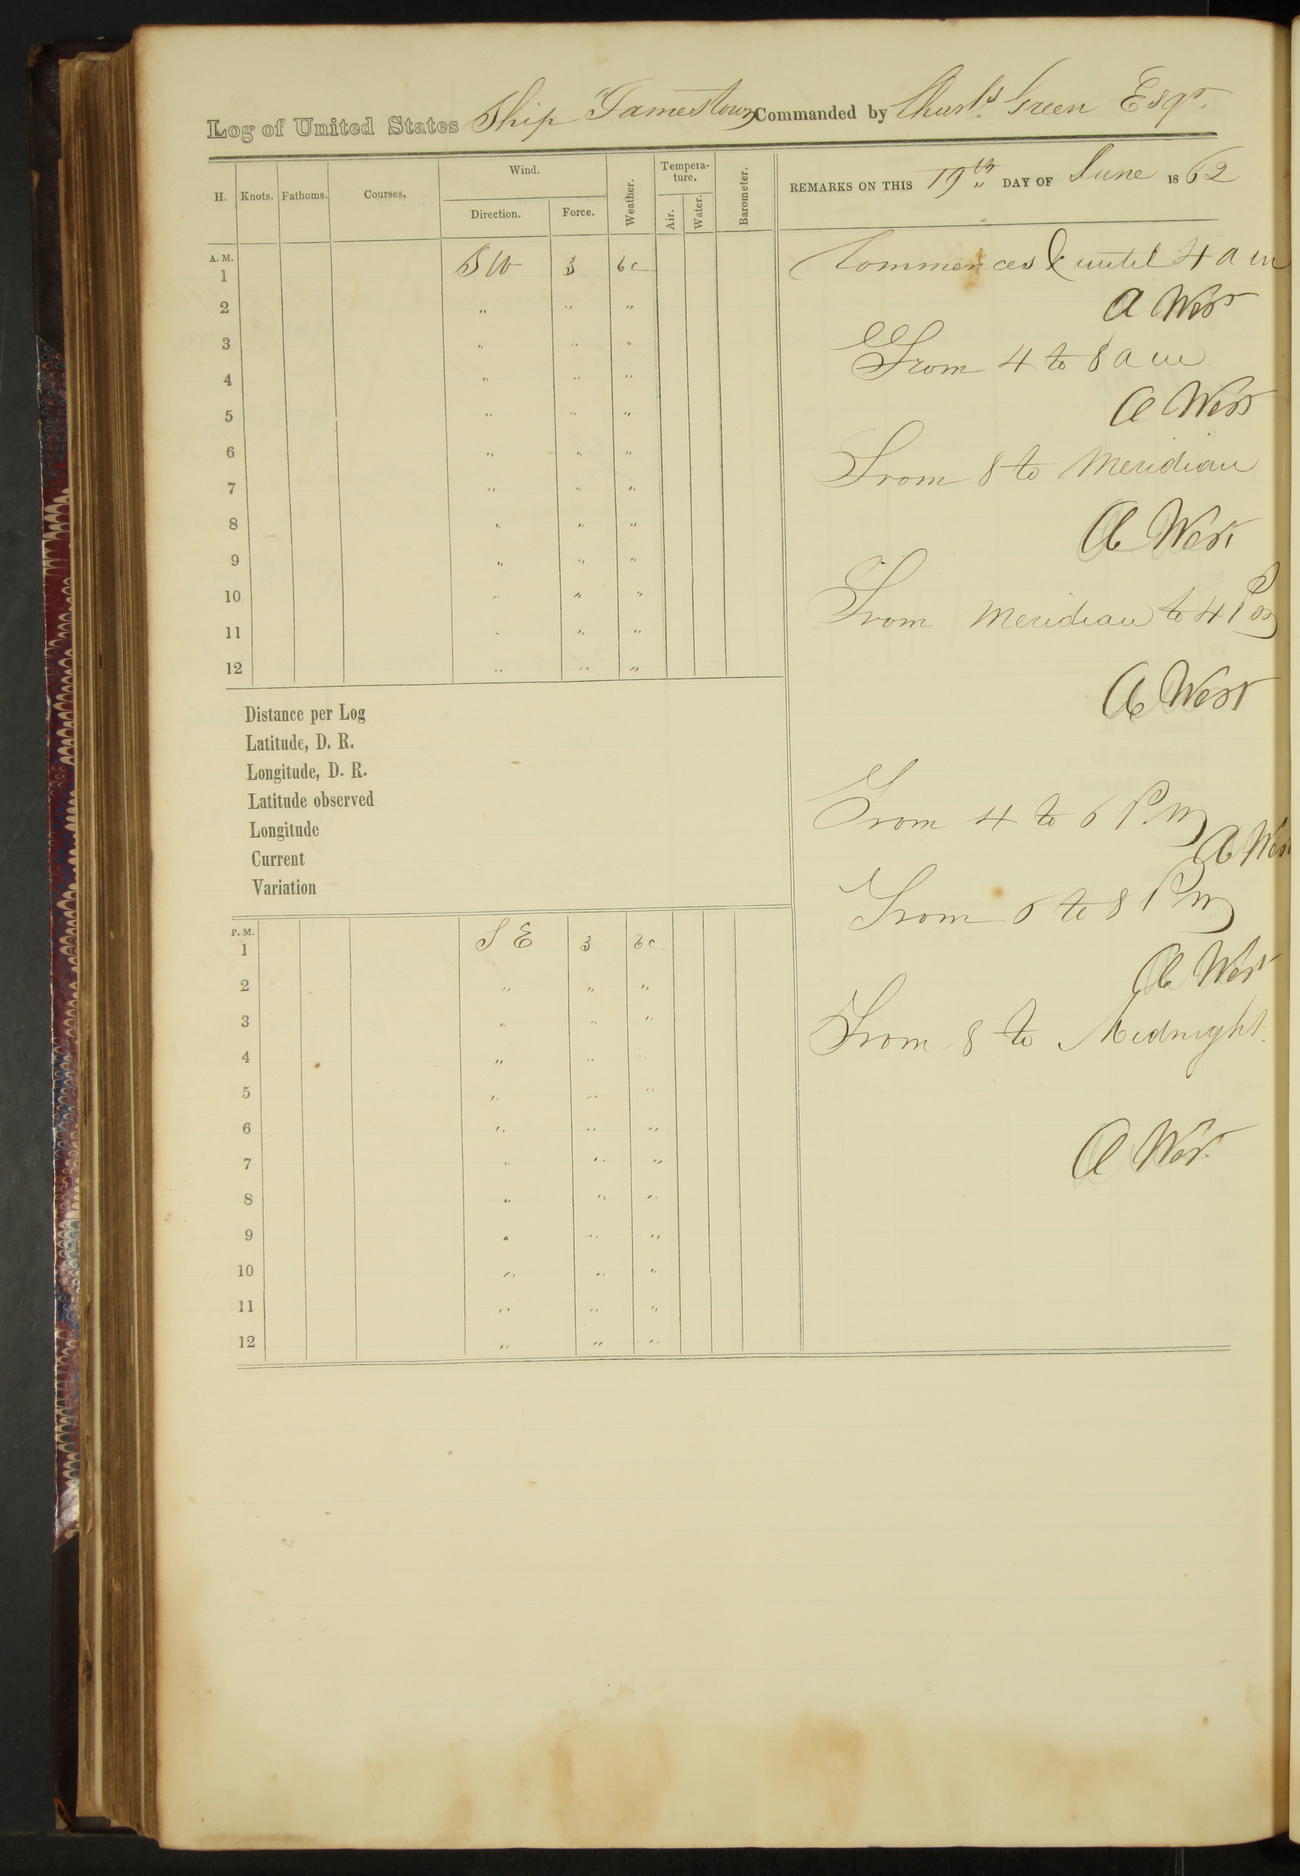 Log of United States Ship Jamestown Commanded by Charls Green Esqr.
REMARKS ON THIS 19th DAY OF June 1862
H. Knots. Fathoms. Courses. Wind. Direction. Force. Weather. Tempera-ture. Air. Water. Barometer.
A. M.
1 SW 3 bc
2 " " "
3 " " "
4 " " "
5 " " "
6 " " "
7 " " "
8 " " "
9 " " "
10 " " "
11 " " "
12 " " "
Distance per Log
Latitude, D. R.
Longitude, D. R.
Latitude observed
Longitude
Current
Variation
P. M.
1 SE 3 bc
2 " " "
3 " " "
4 " " "
5 " " "
6 " " "
7 " " "
8 " " "
9 " " "
10 " " "
11 " " "
12 " " "
Commences & until 4 a m
A West
From 4 to 8 a m
A West
From 8 to Meridian
A West
From Meridian to 4 Pm
A West
From 4 to 6 P.m
A West
From 6 to 8 Pm
A West
From 8 to Midnight.
A West